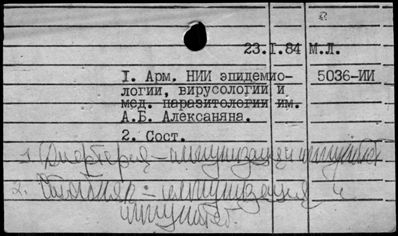 23.I.84 М.Л.
I. Арм. НИИ эпидемио- 5036-ИИ
логии, вирусологии и
мед. паразитологии им.
А.Б. Алексаняна.
2. Сост.
1. Дифтерия – иммунизация и иммунитет
2. Столбняк – иммунизация и
иммунитет.